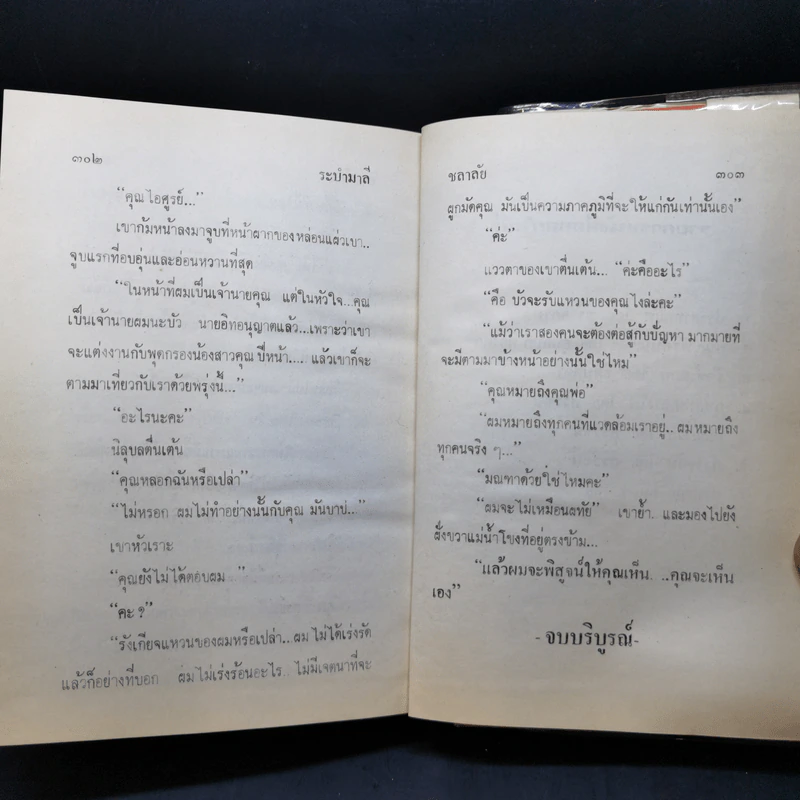 ๓๐๒
ระบำมาลี
“คุณไอศูรย์...”
เขาก้มหน้าลงมาจูบที่หน้าผากของหล่อนแผ่วเบา..
จูบแรกที่อบอุ่นและอ่อนหวานที่สุด
“ในหน้าที่ผมเป็นเจ้านายคุณ แต่ในหัวใจ...คุณ
เป็นเจ้านายผมนะบัว นายอิทอนุญาตแล้ว...เพราะว่าเขา
จะแต่งงานกับพุดกรองน้องสาวคุณ ปีหน้า.... แล้วเขาก็จะ
ตามมาเที่ยวกับเราด้วยพรุ่งนี้...”
“อะไรนะคะ”
นิลุบลตื่นเต้น
“คุณหลอกฉันหรือเปล่า”
“ไม่หรอก ผมไม่ทำอย่างนั้นกับคุณ มันบาป...”
เขาหัวเราะ
“คุณยังไม่ได้ตอบผม ”
“คะ ?”
“รังเกียจแหวนของผมหรือเปล่า...ผมไม่ได้เร่งรัด
แล้วก็อย่างที่บอก ผมไม่เร่งร้อนอะไร.. ไม่มีเจตนาที่จะ
ชลาลัย
๓๐๓
ผูกมัดคุณ มันเป็นความภาคภูมิที่จะให้แก่กันเท่านั้นเอง”
“ค่ะ”
แววตาของเขาตื่นเต้น... “ค่ะคืออะไร”
“คือ บัวจะรับแหวนของคุณไงล่ะคะ”
“แม้ว่าเราสองคนจะต้องต่อสู้กับปัญหา มากมายที่
จะมีตามมาข้างหน้าอย่างนั้นใช่ไหม”
“คุณหมายถึงคุณพ่อ”
“ผมหมายถึงทุกคนที่แวดล้อมเราอยู่.. ผมหมายถึง
ทุกคนจริง ๆ...”
“มณฑาด้วยใช่ไหมคะ”
“ผมจะไม่เหมือนผทัย” เขาย้ำ. และมองไปยัง
ฝั่งขวาแม่น้ำโขงที่อยู่ตรงข้าม...
“แล้วผมจะพิสูจน์ให้คุณเห็น. ..คุณจะเห็น
เอง”
-จบบริบูรณ์-